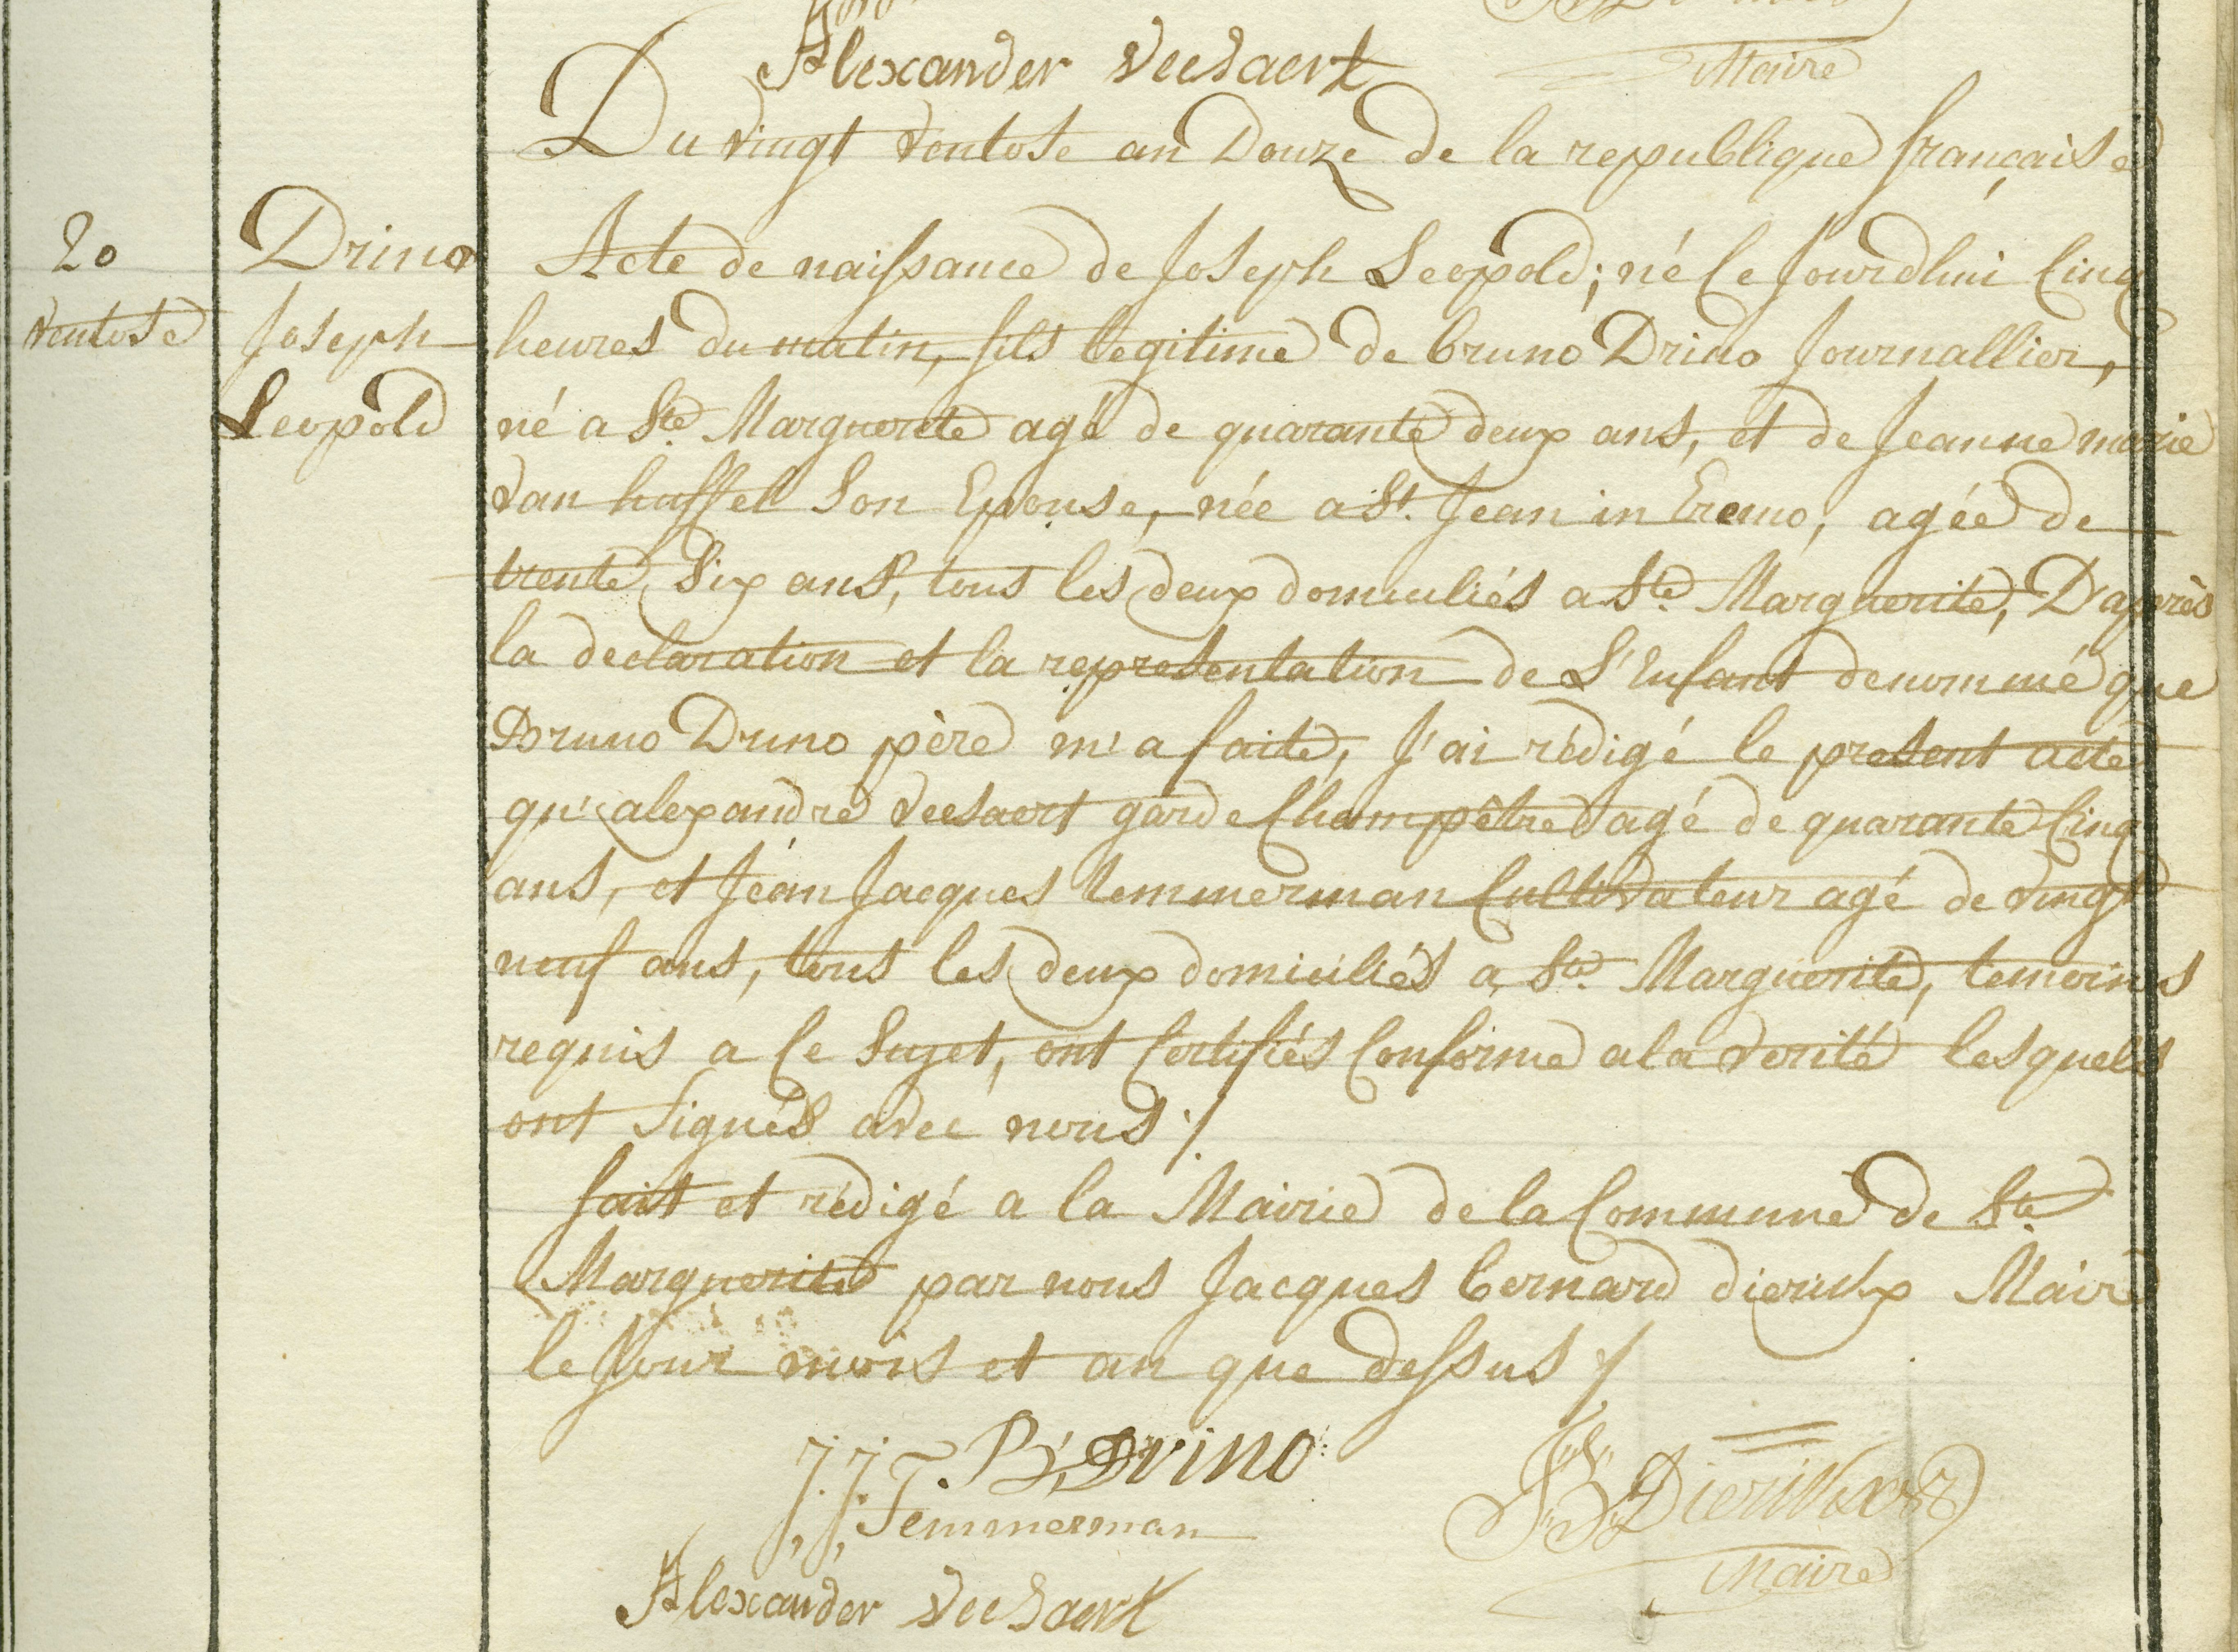 Alexander Veesaert
Maire
Du vingt ventose an Douze de la republique française
20
ventose
Drino
Joseph
Leopold
Acte de naissance de Joseph Leopold; né Ce Jourdhui Cinq
heures du matin, fils legitime de bruno Drino Journallier,
né a Ste. Marguerite agé de quarante deux ans, et de Jeanne marie
van huffel Son Epouse, née a St. Jean in Eremo, agée de
trente Six ans, tous les deux domiciliés a Ste. Marguerite, D'après
la declaration et la representation de L'Enfant denommé que
Bruno Drino père m'a faite, J'ai rédigé le present acte
qu'alexandre Veesaert garde Champêtre agé de quarante Cinq
ans, et Jean Jacques temmerman Cultivateur agé de vingt
neuf ans, tous les deux domiciliés a Ste. Marguerite, temoins
requis a Ce Sujet, ont Certifiés Conforme a la verité lesquels
ont Signés avec nous ./
fait et rédigé a la Mairie de la Commune de Ste.
Marguerite par nous Jacques bernard dierickx Maire
le Jour mois et an que dessus /
B. Drino
J.J. Temmerman
JB Dierickx
Maire
Alexander Veesaert